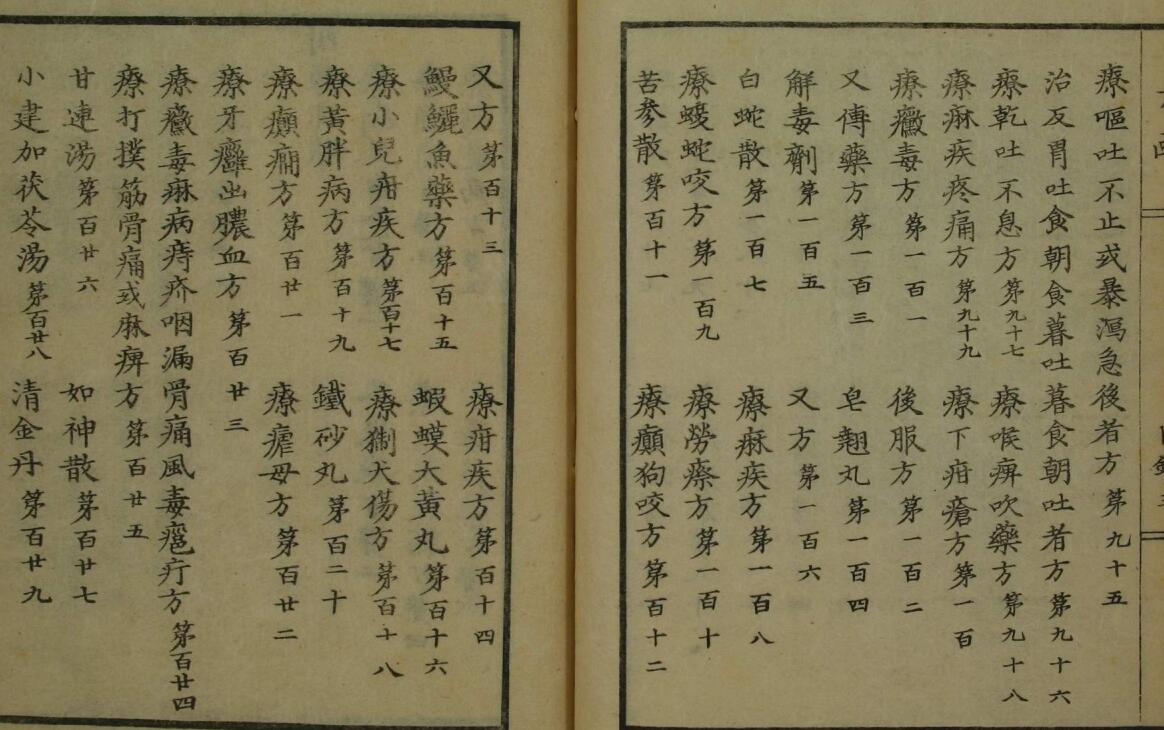 療嘔吐不止或暴瀉急後者方 第九十五
治反胃吐食朝食暮吐暮食朝吐者方 第九十六
療乾吐不息方 第九十七 療喉痹吹藥方 第九十八
療痳疾疼痛方 第九十九 療下疳瘡方 第一百
療黴毒方 第一百一 後服方 第一百二
又傳藥方 第一百三 皂翹丸 第一百四
解毒劑 第一百五 又方 第一百六
白蛇散 第一百七 療痳疾方 第一百八
療蝮蛇咬方 第一百九 療勞瘵方 第一百十
苦參散 第百十一 療癲狗咬方 第百十二
又方 第百十三 療疳疾方 第百十四
鰻鱺魚藥方 第百十五 蝦蟆大黃丸 第百十六
療小兒疳疾方 第百十七 療猘犬傷方 第百十八
療黃胖病方 第百十九 鐵砂丸 第百二十
療癲癇方 第百廿一 療瘧母方 第百廿二
療牙癰出膿血方 第百廿三
療黴毒痳病痔疥咽漏骨痛風毒瘢疔方 第百廿四
療打撲筋骨痛或麻痹方 第百廿五
甘連湯 第百廿六 如神散 第百廿七
小建加茯苓湯 第百廿八 清金丹 第百廿九